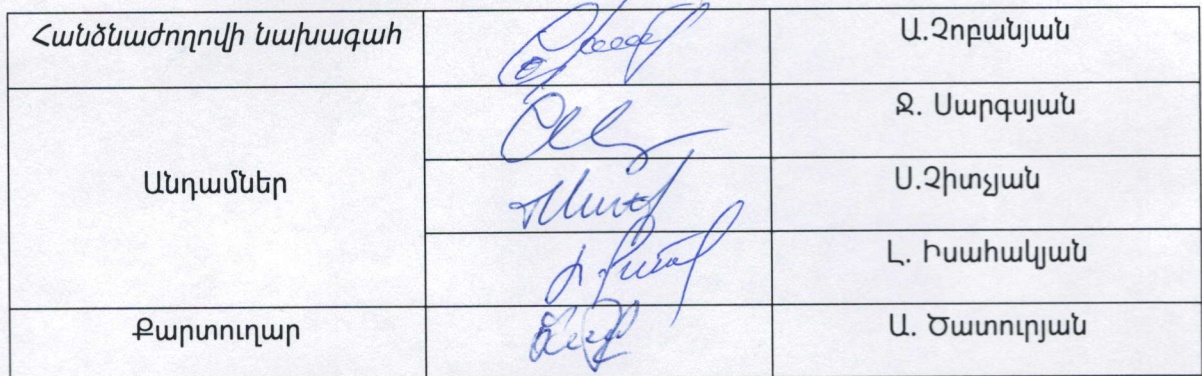 Հանձնաժողովի նախագահ
Ա.Չոբանյան
Ջ. Սարգսյան
Անդամներ
Ս.Չիտչյան
Լ. Իսահակյան
Քարտուղար
Ա. Ծատուրյան